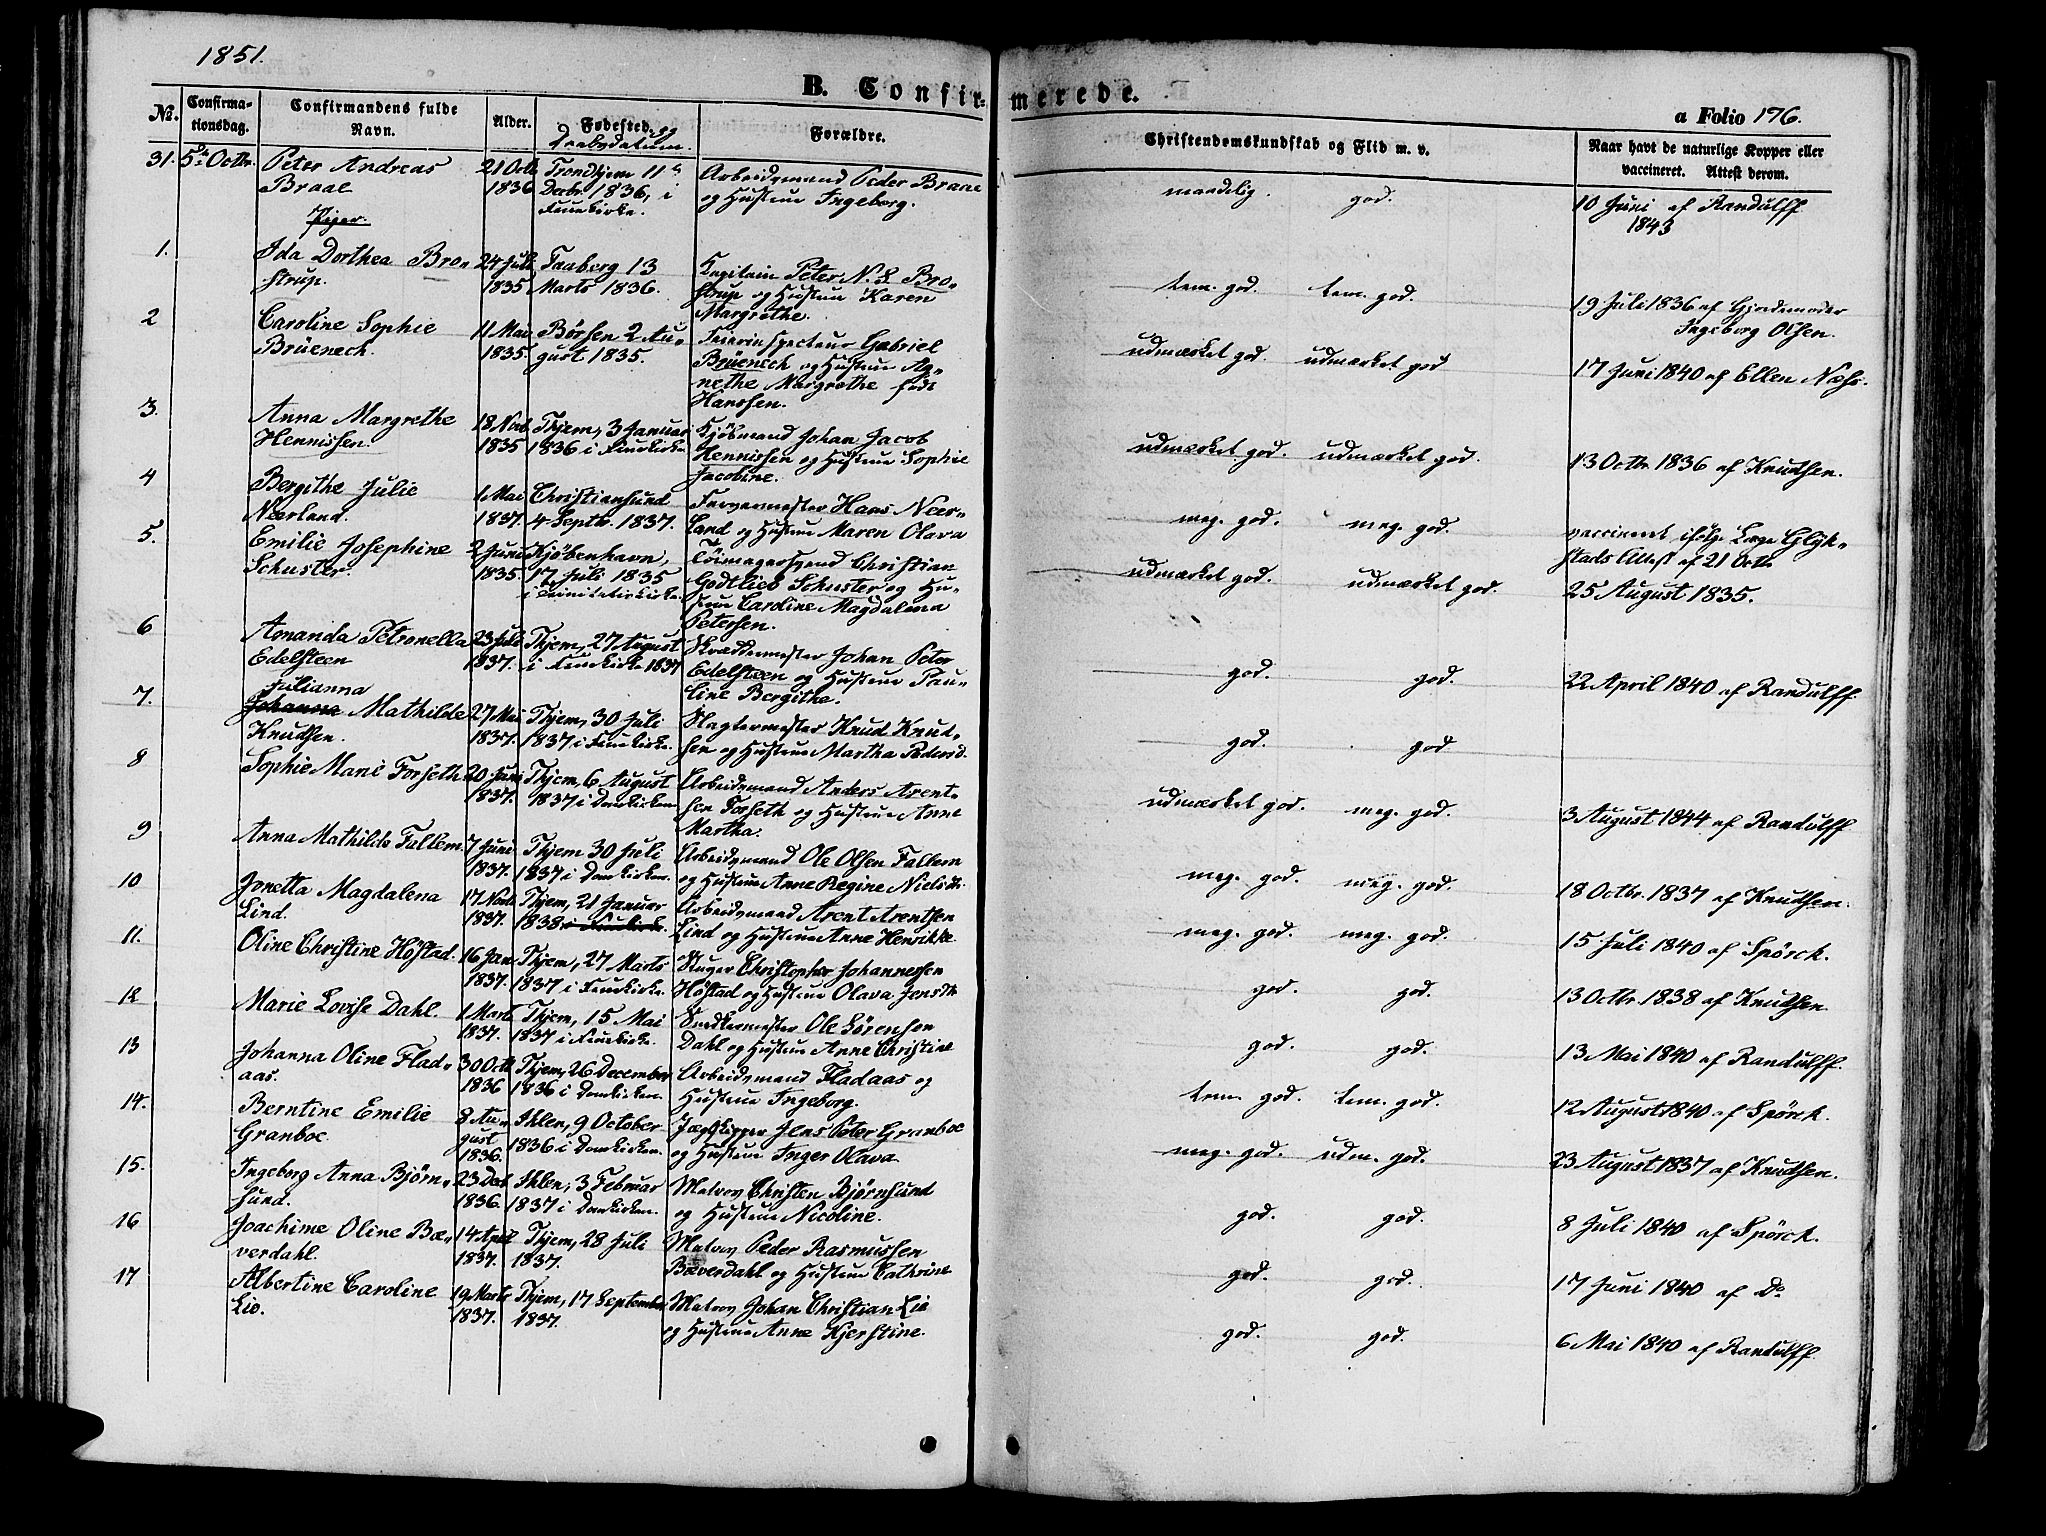 1851.
B. Confirmerede.
a Folio 176.
No.
Confirmationsdag.
Confirmandens fulde Navn.
Alder.
Fødested og Daabsdatum.
Forældre.
Christendomskundskab og Flid m. v.
Naar havt de naturlige Kopper eller vaccineret. Attest derom.
31. 5te Octbr. Peter Andreas 21 Octb. Trondhjem 11te Arbeidsmand Peder Braae maadelig. god. 10 Juni af Randulff
Braae 1836 Decbr. 1836, i og Hustrue Ingeborg. 1843
Fruekirke.
Piger.
1. Ida Dorthea Bro- 24 Juli Faaberg 13 Kapitain Peter N. L. Bro- tem. god. tem. god. 19 Juli 1836 af Gjordemoder
strup. 1835 Marts 1836. strup og Hustrue Karen Ingeborg Olsen.
Margrethe.
2 Caroline Sophie 11 Mai Børsen 2 Au- Feierinspecteur Gabriel udmærket god. udmærket god 17 Juni 1840 af Ellen Næss.
Brüenech. 1835. gust 1835. Brüenech og Hustrue Ag-
nethe Margrethe født
Hanssen.
3. Anna Margrethe 18 Novb. Thjem, 3 Januar Kjøbmand Johan Jacob udmærket god. udmærket god. 13 Octbr. 1836 af Knudtsen.
Hennissen. 1835 1836 i Fruekirke Hennissen og Hustrue Sophie
Jacobine.
4 Bergithe Julie 1 Mai Christiansund Farvermester Hans Neer- meg. god. meg. god. vaccineret ifølge Læge Glük-
Neerland. 1837. 4 Septbr. 1837. land og Hustrue Maren Olava stads Attest af 21 Octb.
5. Emilie Josephine 2 Juni Kjøbenhavn, Tøimagersvend Christian udmærket god. udmærket god. 25 August 1835.
Schuster. 1835. 17 Juli 1835 Godtlieb Schuster og Hu-
i Trinitatiskirke. strue Caroline Magdalena
Petersen.
6 Amanda Petronella 23 Juli Thjem, 27 August Skrædermester Johan Peter god. god. 22 April 1840 af Randulff
Edelsteen 1837. i Fruekirke 1837 Edelsteen og Hustrue Pau-
line Bergithe.
Julianna
7. Johanna Mathilde 27 Mai Thjem, 30 Juli Slagtermester Knud Knut- god. god
Knudsen. 1837. 1837 i Fruekirke. sen og Hustrue Martha Pedersd.
8 Sophie Marie Forseth 20 Juni Thjem, 6 August Arbeidsmand Anders Arent- udmærket god. meg. god. 3 August 1844 af Randulff
1837. 1837 i Domkirken sen Forseth og Hustrue Anne
Martha.
9 Anna Mathilde Fallem 7 Juni Thjem 30 Juli Arbeidsmand Ole Olsen Fallem meg. god. meg. god. 18 Octbr. 1837 af Knudtsen.
1837. 1837 i Domkirken. og Hustrue Anne Regine Nielsdtr.
10 Jonetta Magdalena 17 Novb. Thjem, 21 Januar Arbeidsmand Arent Arentsen meg. god. meg. god. 15 Juli 1840 af Spørck.
Lind. 1837. 1838 i Fruekirke. Lind og Hustrue Anne Henrikke.
11. Oline Christine Høstad. 16 Jan. Thjem, 27 Marts Stuger Christopher Johannessen god. god. 13 Octbr. 1838 af Knudtsen
1837. 1837 i Fruekirke. Høstad og Hustrue Olava Jensdtr.
12 Marie Lovise Dahl. 1 Marts Thjem, 15 Mai Snedkermester Ole Sørensen god. god. 13 Mai 1840 af Randulff.
1837. 1837 i Fruekirke. Dahl og Hustrue Anne Christine
13 Johanna Oline Flad- 30 Octb. Thjem, 26 December Arbeidsmand Fladaas og tem. god. tem. god. 12 August 1840 af Spørck.
aas. 1836 1836 i Domkirken. Hustrue Ingeborg.
14. Berntine Emilie 8 Au- Ihlen, 9 October Jægtskipper Jens Peter Granboe meg. god. udm. god. 23 August 1837 af Knudtsen.
Granboe. gust 1836 i Domkirken. og Hustrue Inger Olava
1836.
15. Ingeborg Anna Bjørn- 23 Decb Ihlen, 3 Februar Matros Christen Bjørnsund god. god. 8 Juli 1840 af Spørck.
sund. 1836. 1837 i Domkirken. og Hustrue Nicoline.
16 Joachime Oline Bæ- 14 April Thjem, 28 Juli Matros Peder Rasmussen god. god. 17 Juni 1840 af Do
verdahl. 1837. 1837. Bæverdahl og Hustrue Cathrine
17 Albertine Caroline 19 Marts Thjem, 17 September Matros Johan Christian Lie god. god. 6 Mai 1840 af Randulff.
Lie. 1837. 1837. og Hustrue Anne Kjerstine.